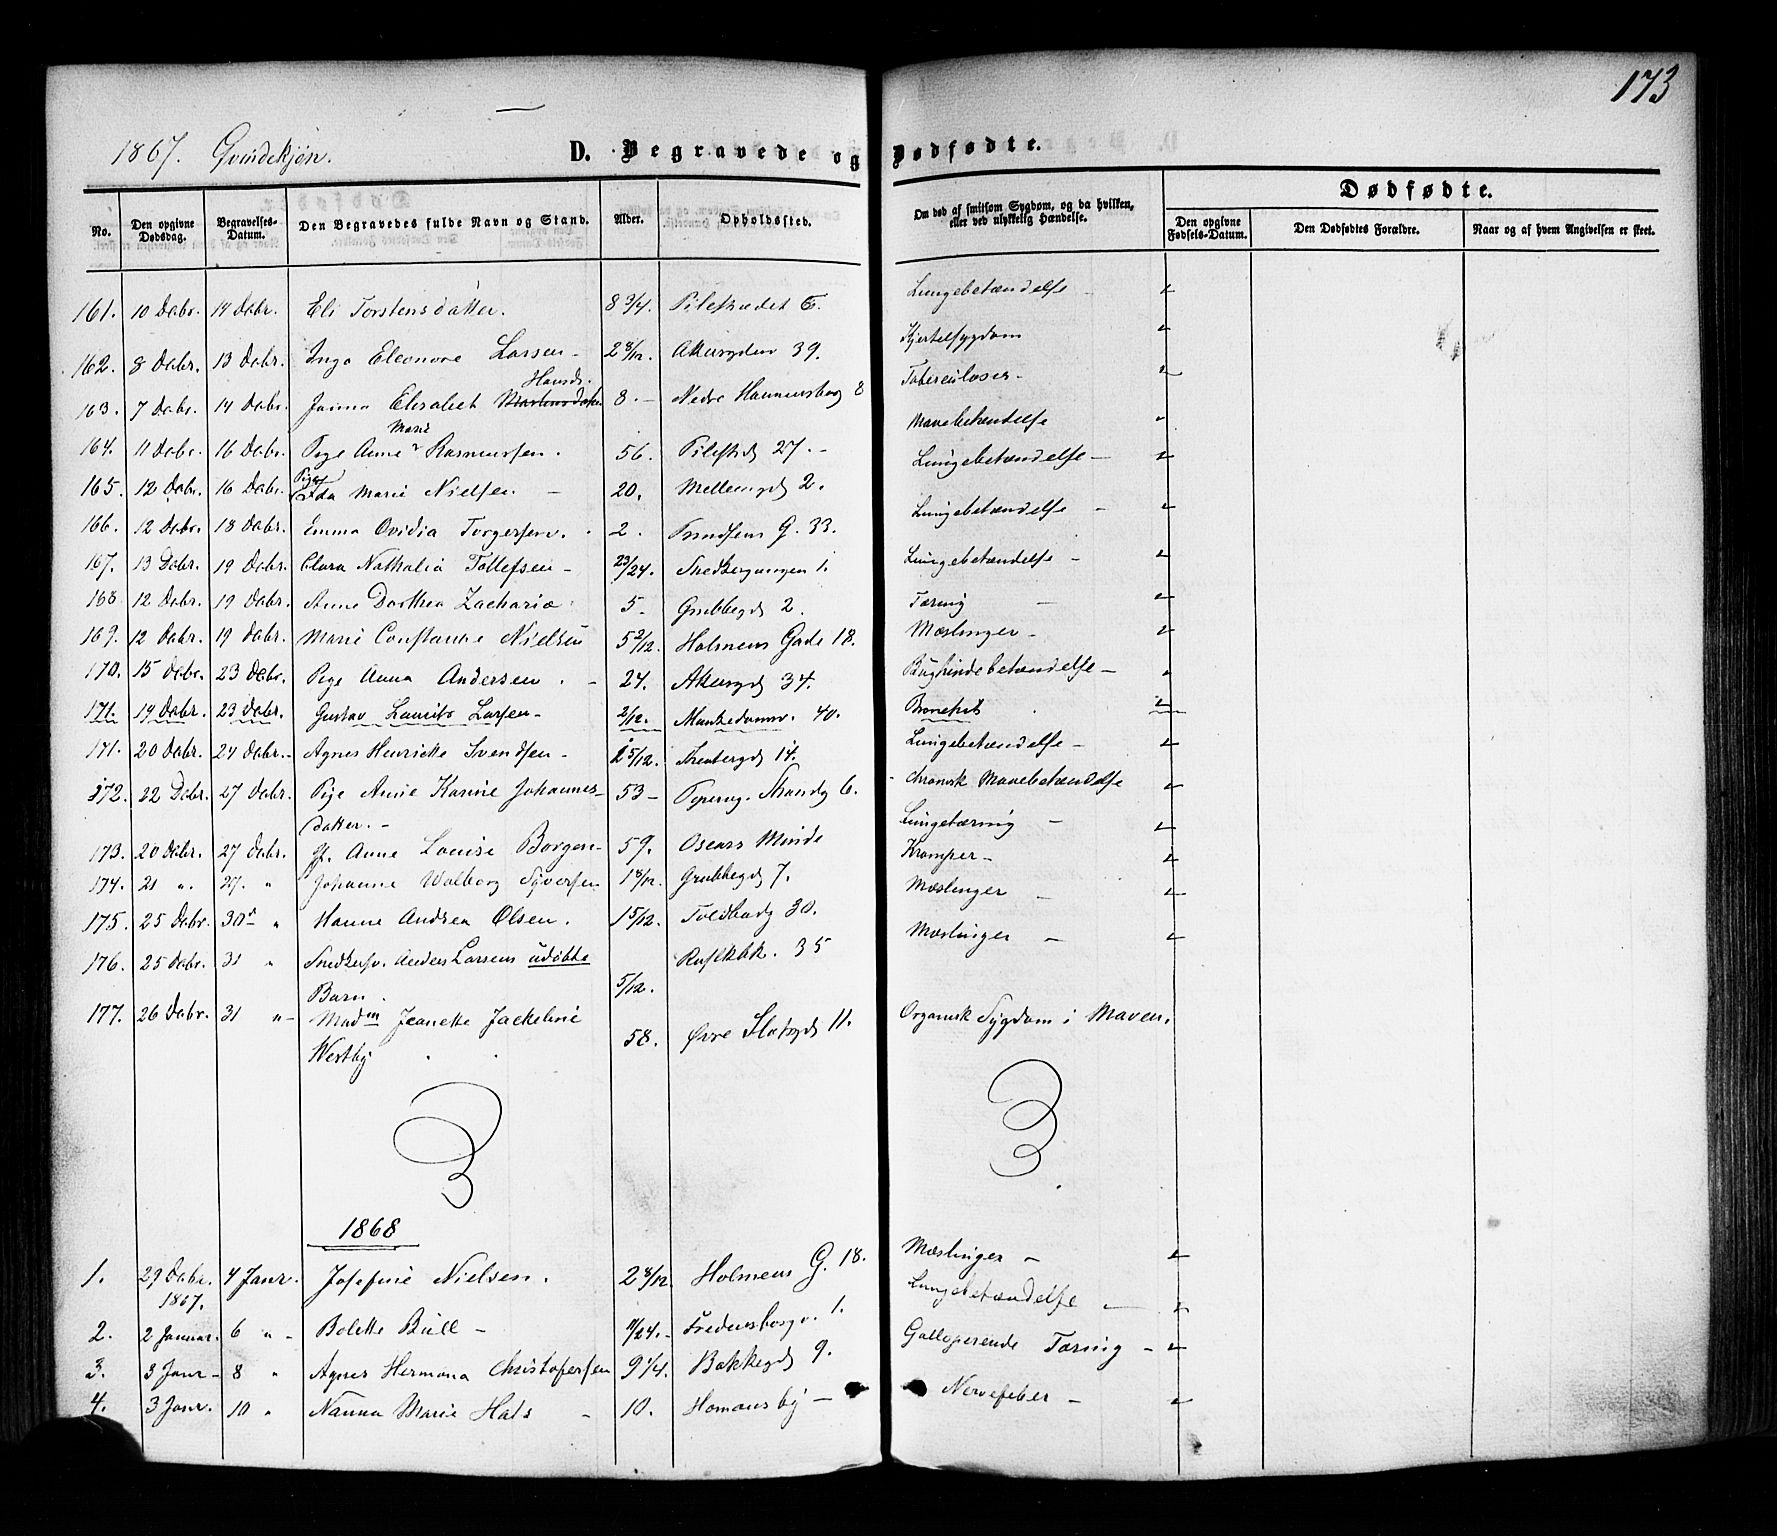 173
1867. Qvindekjøn. D. Begravede og Dødfødte.
No. Den opgivne Dødsdag. Begravelses-Datum. Den Begravedes fulde Navn og Stand. Alder. Opholdssted. Om død af smitsom Sygdom, og da hvilken, eller ved ulykkelig Hændelse. Dødfødte.
Den opgivne Fødsels-Datum. Den Dødfødtes Forældre. Naar og af hvem Angivelsen er skeet.
161. 10 Decbr. 14 Decbr. Eli Torstensdatter. 8 3/4. Pilestrædet 6. Lungebetændelse
162. 8 Decbr. 13 Decbr. Inga Eleonore Larsen - 2 8/12. Akersgden 39. Kjertelsygdom
163. 7 Decbr. 14 Decbr. Elisabet 8. - Nedre 8 Tuberculoser -
164. 11 Decbr. 16 Decbr. Pige Anne Marie Rasmussen. 56. Pilestd 27. - Mavebetændelse
165. 12 Decbr. 16 Decbr. Pige Ida Marie Nielsen - 20. Mellemgd 2. Lungebetændelse -
166. 12 Decbr. 18 Decbr. Emma Ovidia Torgersen. 2. G. 33. Lungebetændelse -
167. 13 Decbr. 19 Decbr. Clara Nathalia Tollefsen - 23/24. Snedkergangen 1. Lungebetændelse -
168 12 Decbr. 19 Decbr. Anne Dorthea Zachariæ. 5. Grubbegd 2. Tæring -
169. 12 Decbr. 19 Decbr. Marie Constance Nielsen 5 2/12. Holmens Gade 18. Mæslinger -
170. 15 Decbr. 23 Decbr. Pige Anna Andersen. - 24. Akersgd 34. Bughindebetændelse -
171. 19 Decbr. 23 Decbr. Gustav Laurits Larsen - 2/12. Munkedamsv. 40. Bronchit
171. 20 Decbr. 24 Decbr. Agnes Henriette Svendsen - 1 5/12. Theatergd 14. Lungebetændelse -
172. 22 Decbr. 27 Decbr. Pige Anne Karine Johannes- 53 - Strandg 6. chronisk Mavebetændelse
datter. -
173. 20 Decbr. 27 Decbr. Anne Louise Borgen - 59. Oscars Minde Lungetæring -
174. 21 " 27. " Johanne Walborg Syversen 1 8/12. Grubbegd 7. Kramper -
175. 25 Decbr. 30 " Hanne Andrea Olsen. 1 5/12. Toldbodg 30. Mæslinger -
176. 25 Decbr. 31 " Snedkersv. Anders Larsens udøbte 35 Mæslinger -
Barn. 5/12.
177. 26 Decbr. 31 " - Madm Jeanette Jackeline 58. Øvre Slotsgd 11. Organisk Sygdom i Maven.
Westby
1868
1. 29 Decbr. 1867. 4 Janr. Josefine Nielsen. 2 8/12 Holmens G. 18. Mæslinger -
2. 2 Januar. 6 " - Bolette Bull - 11/24. - Fredensborgv. 1. Lungebetændelse -
3. 3 Janr - 8 " Agnes Hermana Christofersen 9 1/4. Bakkegd 9. Galloperende Tæring -
4. 3 Janr. 10 " Nanna Marie Hals - 10. Homansby - Nervefeber -